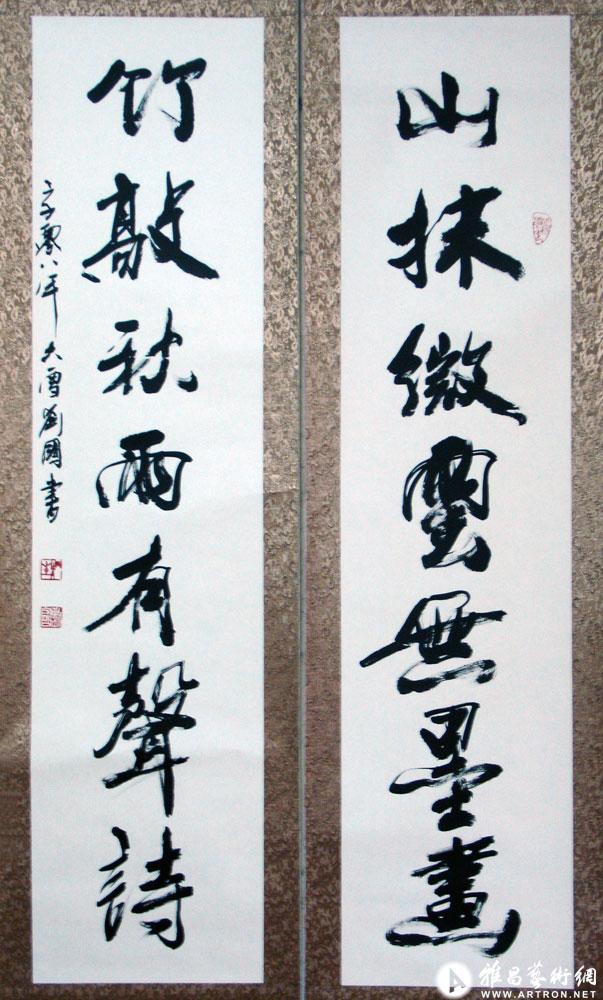 山抹微雲無墨畫
竹敲秋雨有聲詩
零八年 劉國書
雅昌藝術網
WWW.ARTRON.NET